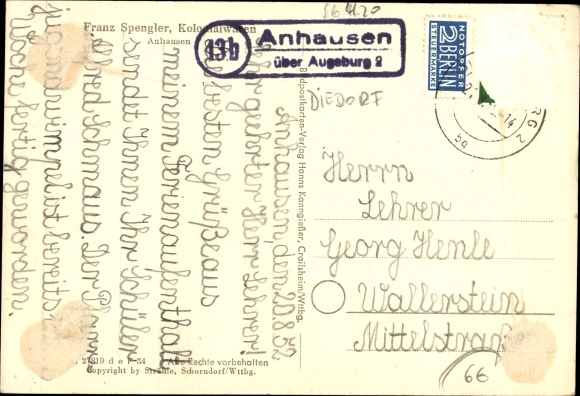 Franz Spengler, Kolonialwaren
Anhausen
86420
13b
Anhausen
über Augsburg 2
DIEDORF
NOTOPFER
2 BERLIN
STEUERMARKE
RG 2
14
Anhausen, den 20.8.52
Sehr geehrter Herr Lehrer!
Die besten Grüße aus
meinem Ferienaufenthalt
sendet Ihnen Ihr Schüler
Alfred Schonaus. Der
jugendwimpel ist bereits
Woche fertig geworden.
Bildpostkarten-Verlag Hanns Kanngießer, Crailsheim/Wttbg.
Herrn
Lehrer
Georg Henle
Wallerstein
Mittelstraße
66
219 d e F-34 Alle Rechte vorbehalten
Copyright by Strähle, Schorndorf/Wttbg.